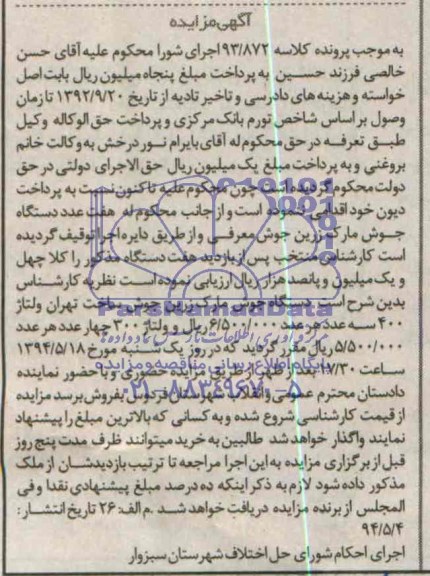 آگهی مزایده
به موجب پرونده کلاسه ۹۳/۸۷۲ اجرای شورا محکوم علیه آقای حسن
خالصی فرزند حسین به پرداخت مبلغ پنجاه میلیون ریال بابت اصل
خواسته و هزینه های دادرسی و تاخیر تادیه از تاریخ ۱۳۹۲/۹/۲۰ تا زمان
وصول بر اساس شاخص تورم بانک مرکزی و پرداخت حق الوکاله وکیل
طبق تعرفه در حق محکوم له آقای بایرام نور درخش به وکالت خانم
بروغنی و به پرداخت مبلغ یک میلیون ریال حق الاجرای دولتی در حق
دولت محکوم گردیده است چون محکوم علیه تا کنون نسبت به پرداخت
دیون خود اقدامی ننموده است و از جانب محکوم له هفت عدد دستگاه
جوش مارک زرین جوش معرفی و از طریق دایره اجرا توقیف گردیده
است کارشناس منتخب پس از بازدید هفت دستگاه مذکور را کلا چهل
و یک میلیون و پانصد هزار ریال ارزیابی نموده است نظریه کارشناس
بدین شرح است دستگاه جوش مارک زرین جوش ساخت تهران ولتاژ
۴۰۰ سه عدد هر عدد ۶/۵۰۰/۰۰۰ ریال و ولتاژ ۳۰۰ چهار عدد هر عدد
۵/۵۰۰/۰۰۰ ریال مقرر گردید که در روز یک شنبه مورخ ۱۳۹۴/۵/۱۸
ساعت بعد از ظهر از طریق مزایده حضوری و با حضور نماینده
دادستان محترم عمومی و انقلاب شهرستان فردوس بفروش برسد مزایده
از قیمت کارشناسی شروع شده و به کسانی که بالاترین مبلغ را پیشنهاد
نمایند واگذار خواهد شد طالبین به خرید میتوانند ظرف مدت پنج روز
قبل از برگزاری مزایده به این اجرا مراجعه تا ترتیب بازدیدشان از ملک
مذکور داده شود لازم به ذکر اینکه ده درصد مبلغ پیشنهادی نقدا و فی
المجلس از برنده مزایده دریافت خواهد شد .م الف: ۲۶ تاریخ انتشار:
۹۴/۵/۴
اجرای احکام شورای حل اختلاف شهرستان سبزوار
ParsNamadData
پایگاه اطلاع رسانی مناقصه و مزایده
۰۲۱-۸۸۳۴۹۶۷۰-۵